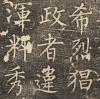 希烈猖
政者違
渾粹秀